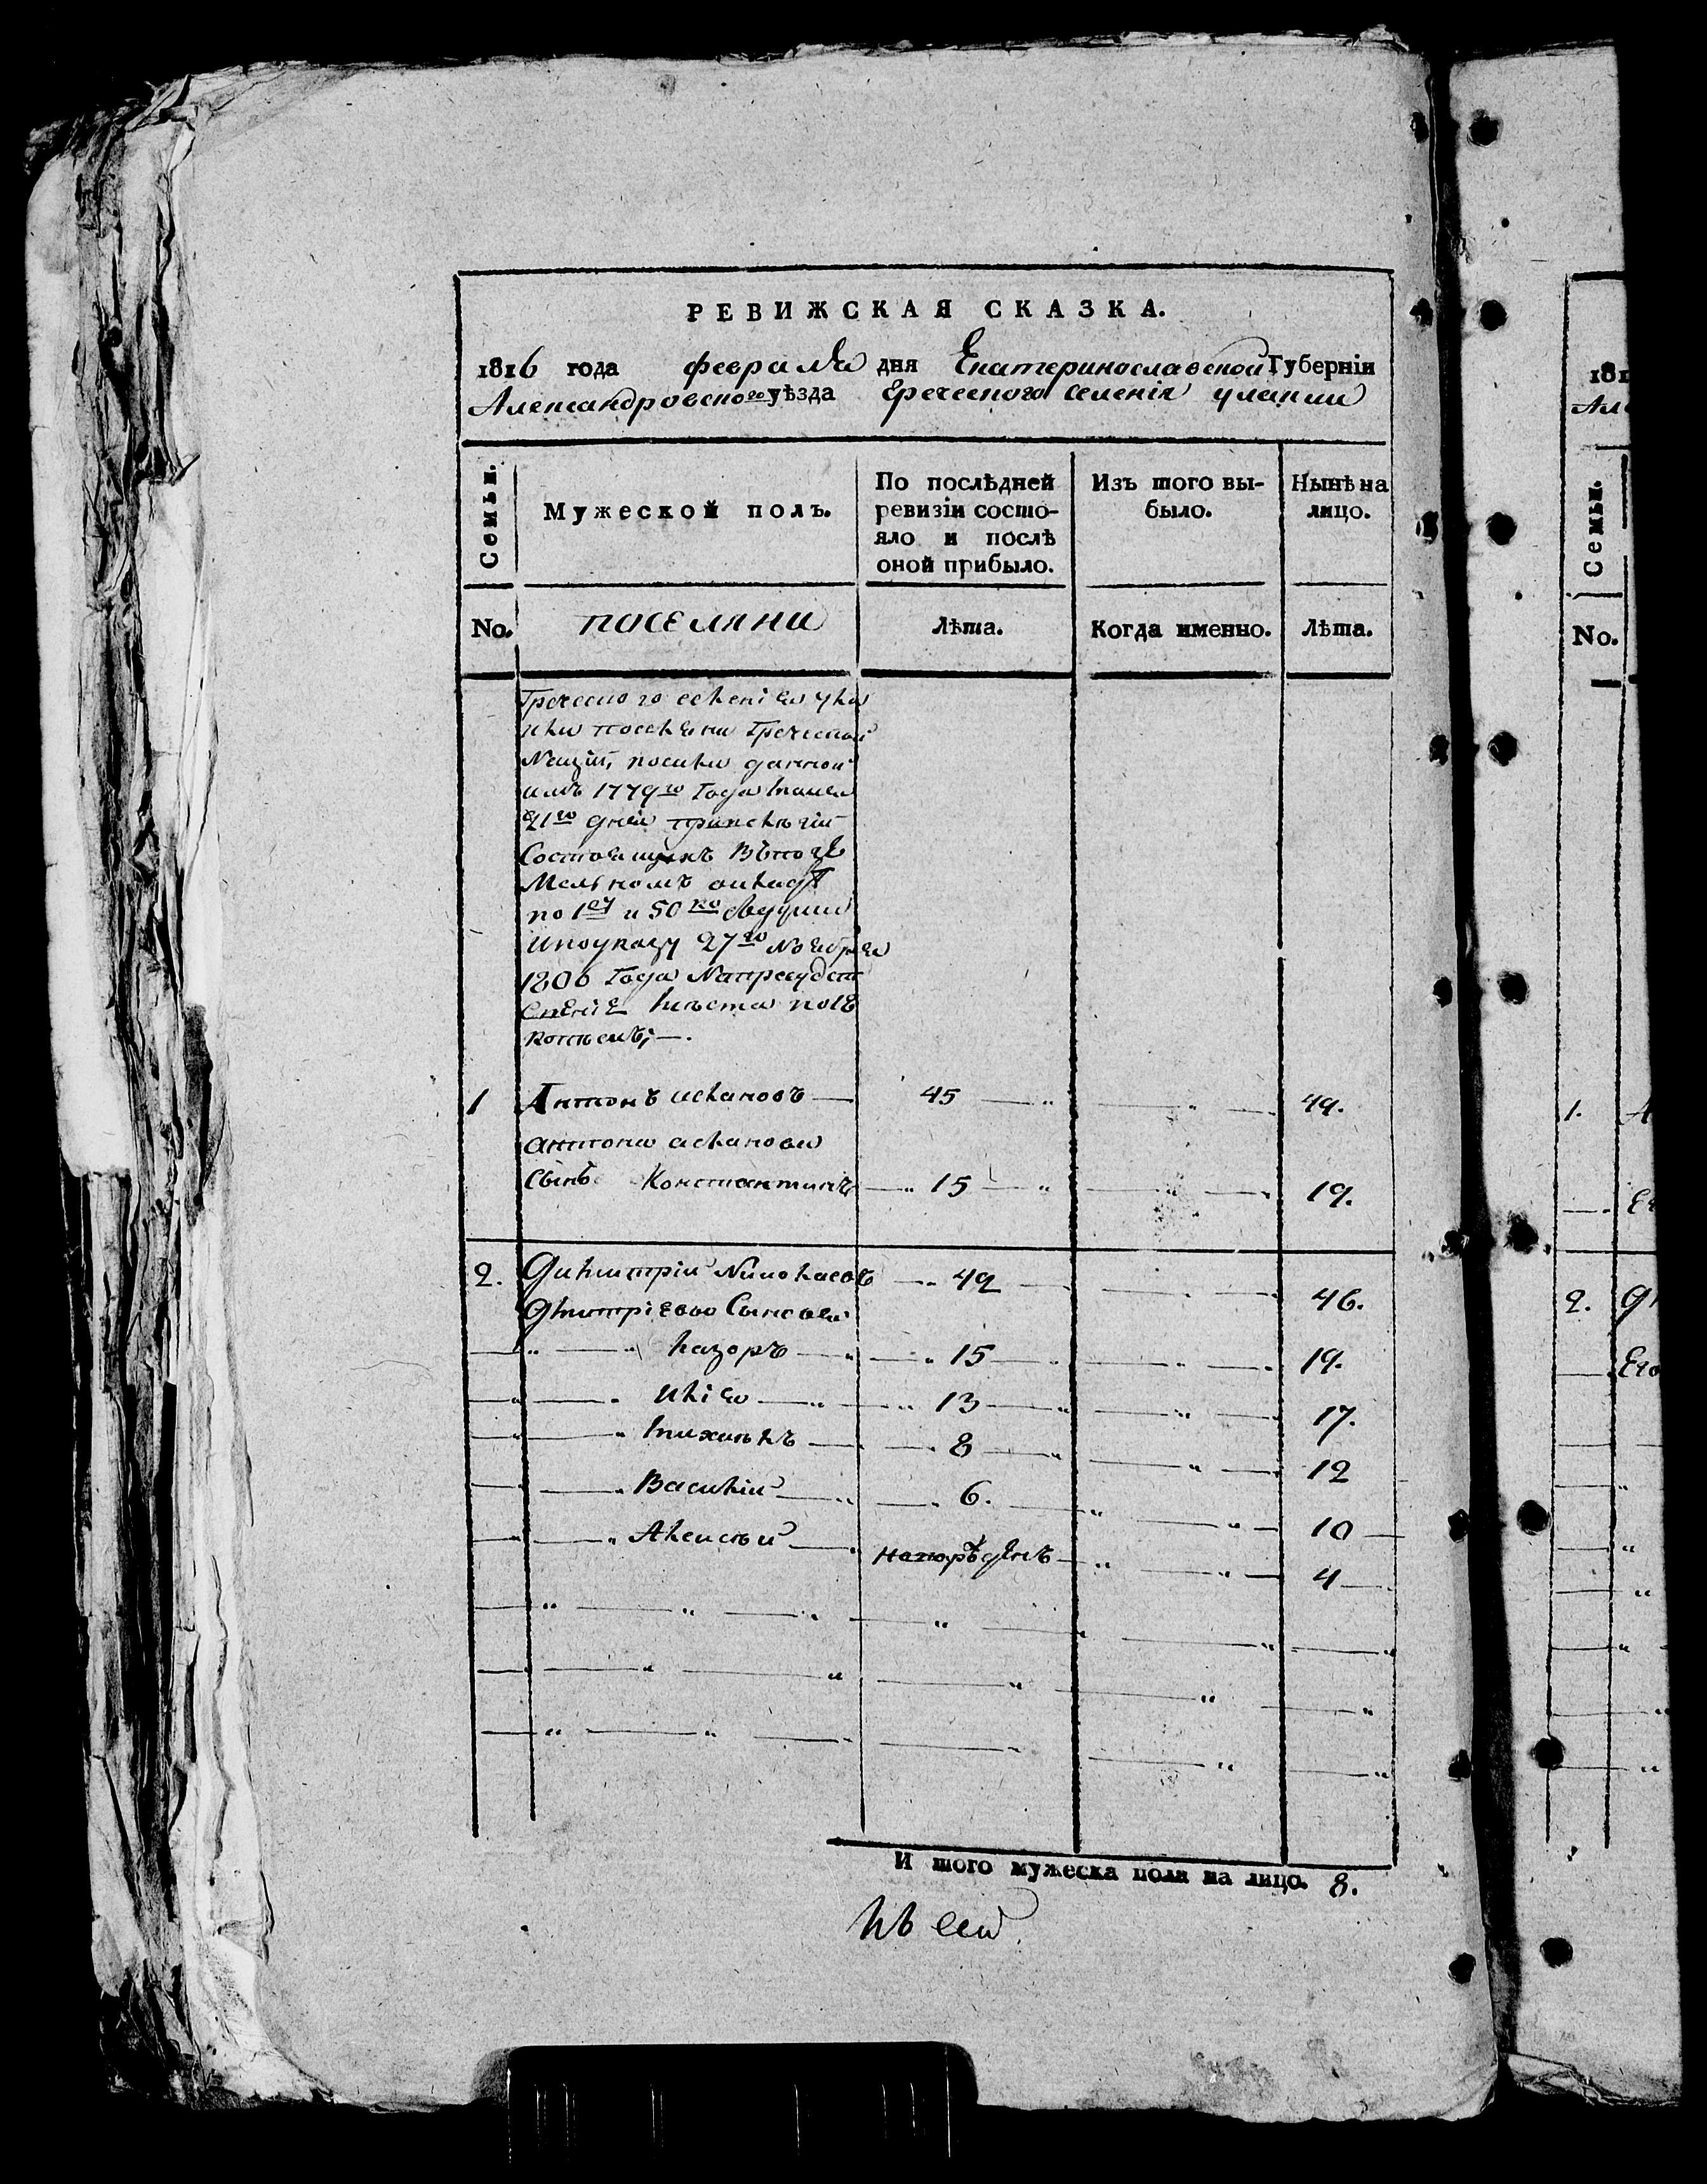 РЕВИЖСКАЯ СКАЗКА.
1816 года февраля дня Екатеринославской Губерніи
Александровского уѣзда Греческого селенія улаклы
Семьи.
Мужеской полъ.
По послѣдней ревизіи состояло и послѣ оной прибыло.
Изъ того выбыло.
Нынѣ на лицо.
No.
поселяни
Лѣта.
Когда именно.
Лѣта.
Греческого селенія ула
клы поселяни Греческой
Нацiи, по силы данной
имъ 1779го Года маия
21го дня привелегiи
Состоящихъ
по 1оу и 50 ко
и по указу 27го Ноября
1806 Года На
места по 18
копѣекъ; —.
1 Антонъ аслановъ — 45 — 49.
антона асланова
Сынъ Константинъ — 15 — 19.
2. Дмитрiй Николаевъ — 42 — 46.
Дмитрiева Сыновья
лазоръ — 15 — 19.
илiя — 13 — 17.
михаилъ — 8 — 12
Василiй — 6. — 10
Алексѣй — 4
И того мужеска пола на лицо. 8.
181
Але
Семьи.
No.
1. А
2. Дм
Его